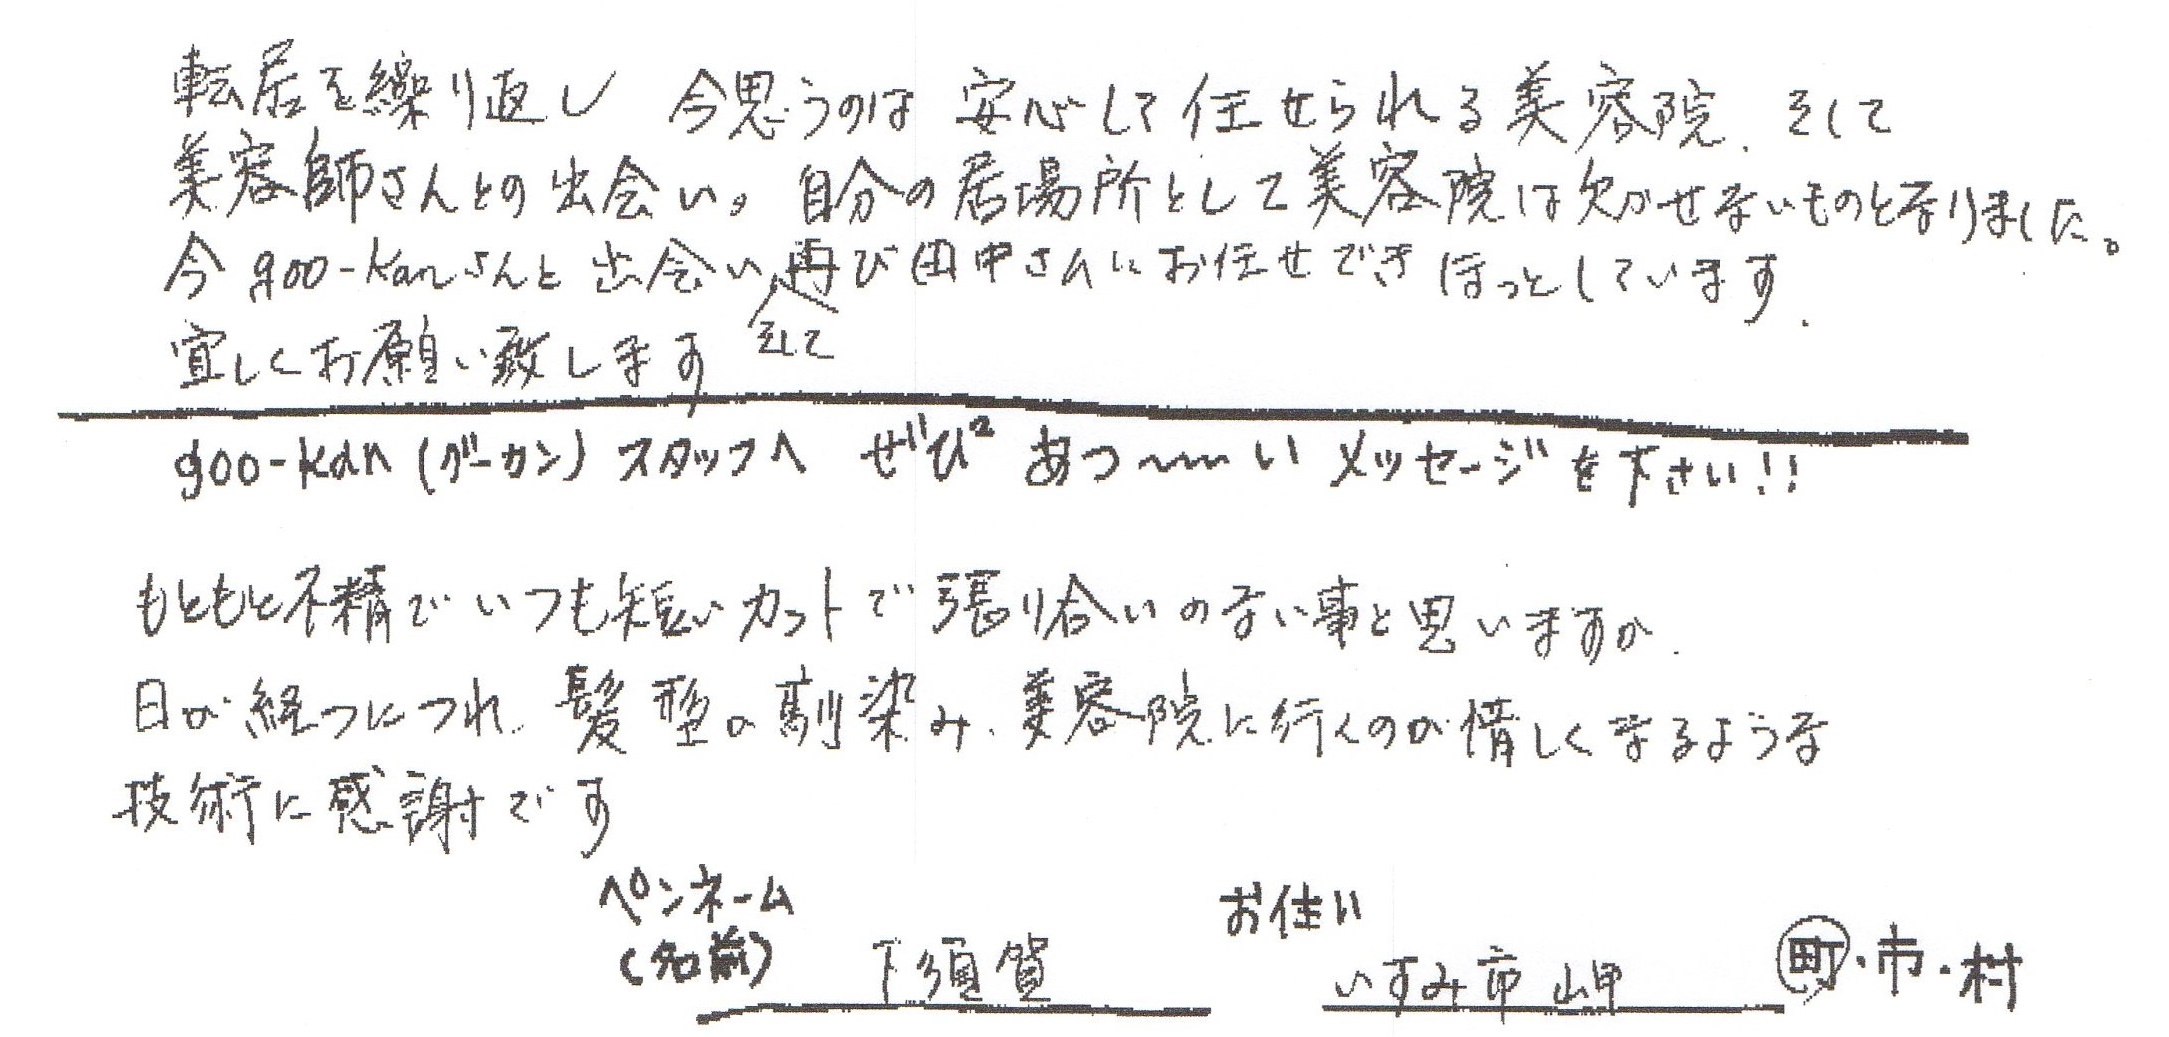 転居を繰り返し 今思うのは 安心して任せられる美容院、そして
美容師さんとの出会い。自分の居場所として美容院は欠かせないものとなりました。
今goo-kanさんと出会い、再び田中さんにお任せできほっとしています.
そして
宜しくお願い致します
goo-kan(グーカン)スタッフへ ぜひ² あつ〜〜い メッセージを下さい!!
もともと不精でいつも短いカットで張り合いのない事と思いますが.
日が経つにつれ、髪型の馴染み、美容院に行くのが惜しくなるような
技術に感謝です
ペンネーム
(名前) 下須賀
お住い
いすみ市岬 町・市・村